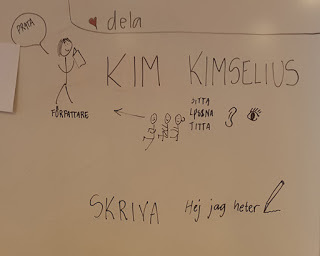 dela
PRATA
KIM KIMSELIUS
FÖRFATTARE
SITTA
LYSSNA
TITTA
SKRIVA Hej jag heter